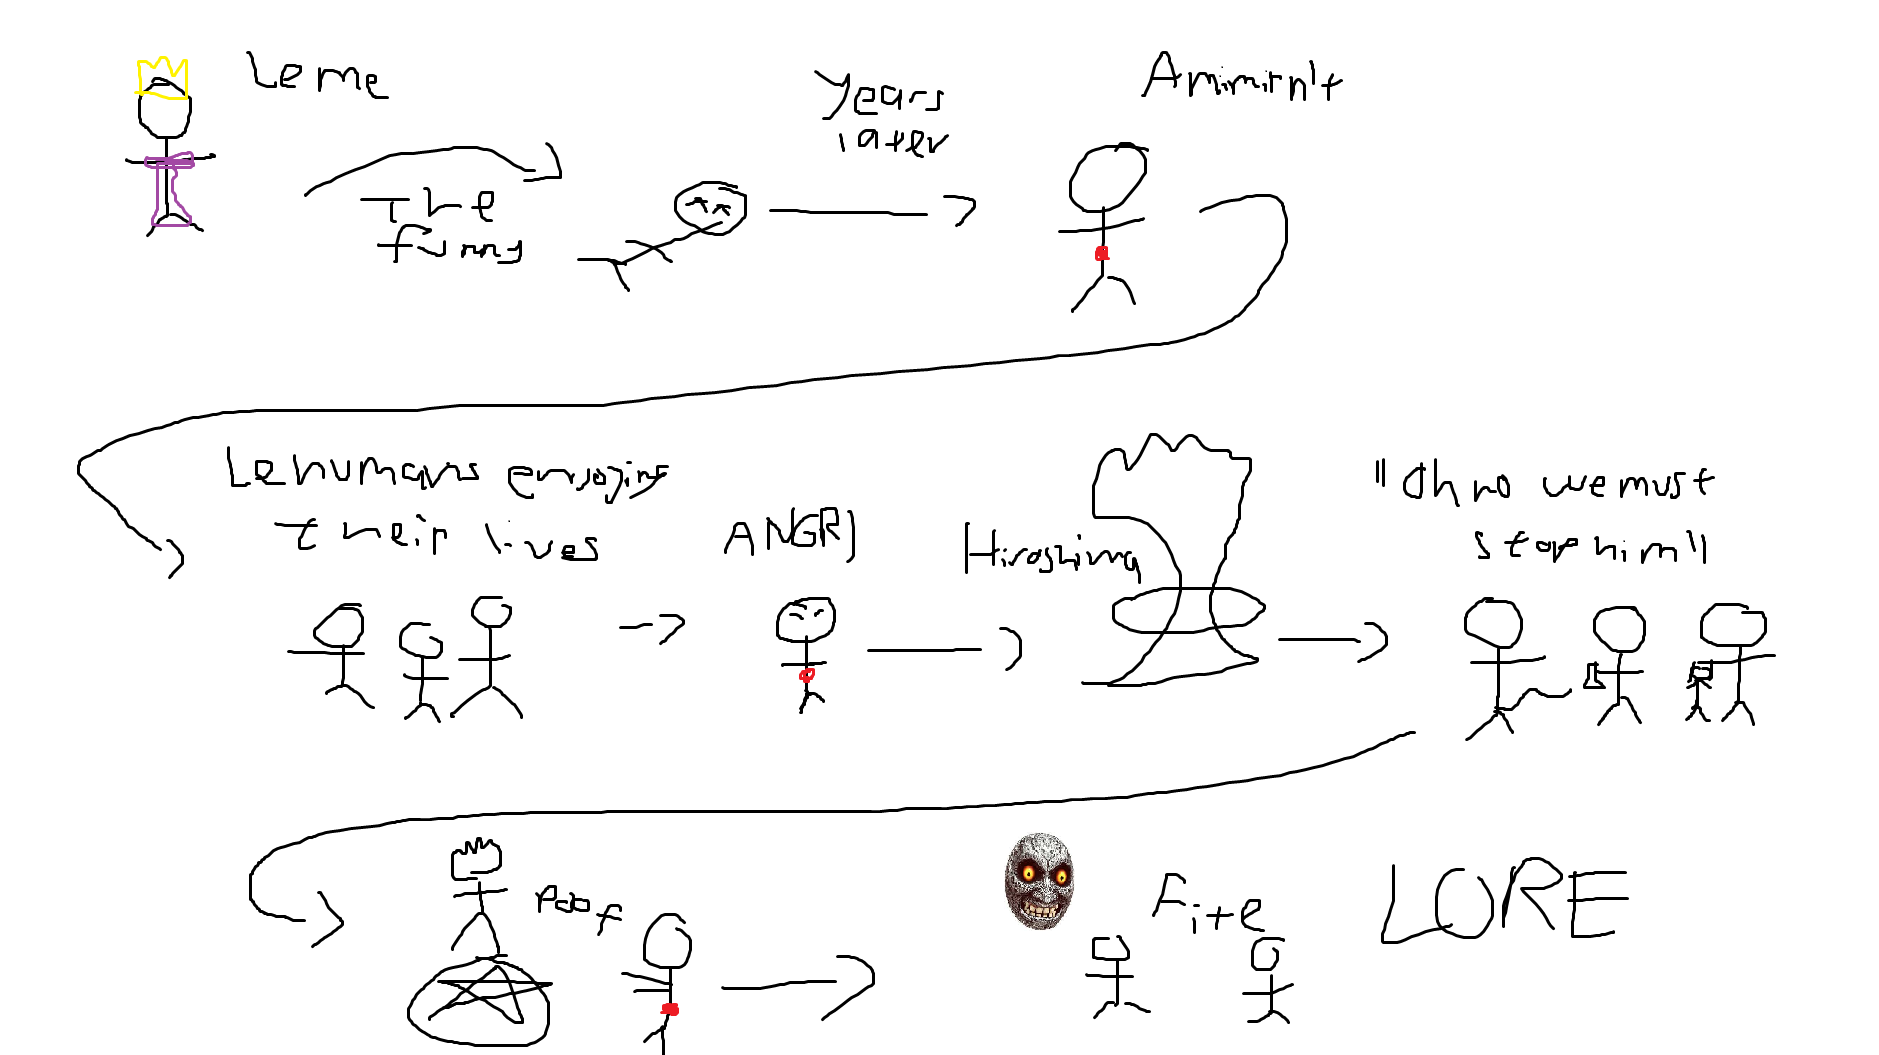 Le me
The
funny
Years
later
Amimirn't
Le humans enjoying
their lives
ANGRJ
Hiroshima
"Oh no we must
stop him"
POOF
Fite
LORE